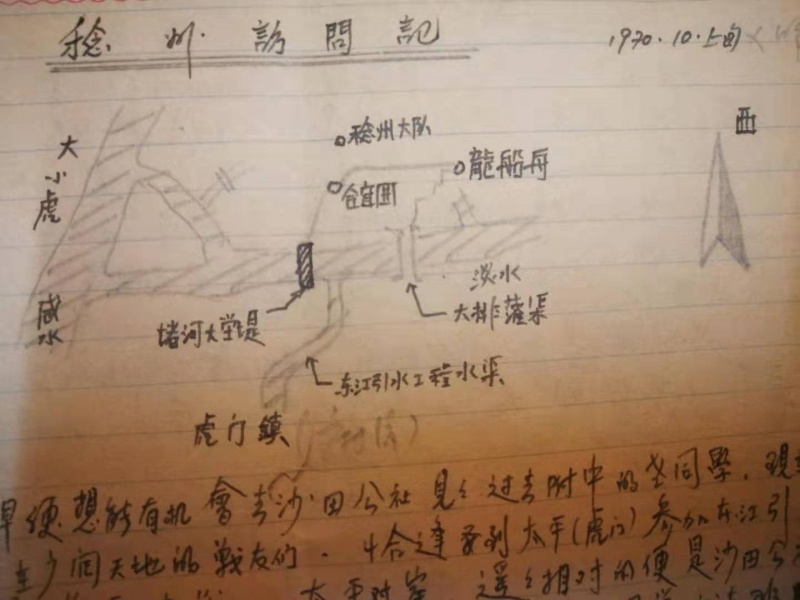 稔州訪問記
1970.10.上旬
西
大小虎
稔州大队
龍船舟
仓宜围
咸水
淡水
堵河大堂堤
大排灌渠
东江引水工程水渠
虎门鎮
早便想能有机會去沙田公社見々过去附中的老同學,現
在广阔天地的戰友们.恰逢要到太平(虎门)参加东江引
太平对岸 遥々相对的便是沙田公